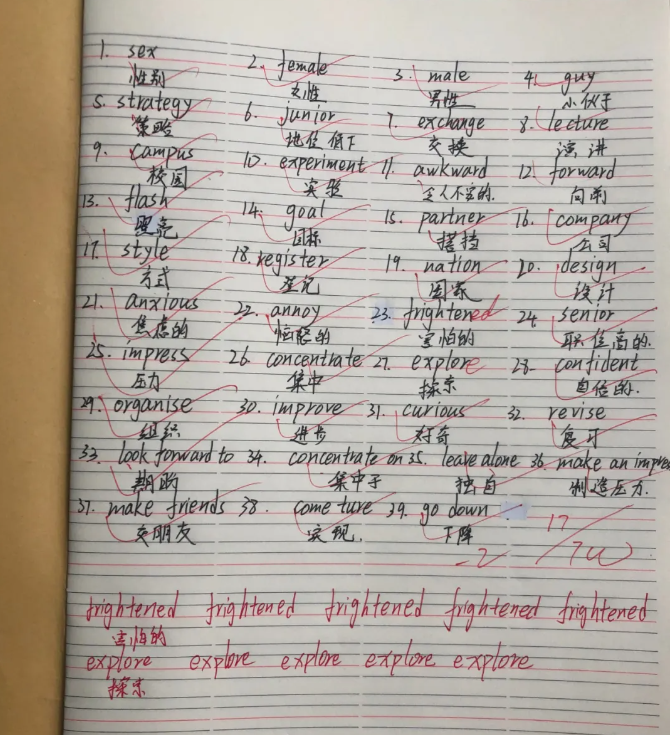 1. sex 2. female 3. male 4. guy
性别 女性 男性 小伙子
5. strategy 6. junior 7. exchange 8. lecture
策略 地位低下 交换 演讲
9. campus 10. experiment 11. awkward 12. forward
校园 实验 令人不安的. 向前
13. flash 14. goal 15. partner 16. company
照亮 目标 搭档 公司
17. style 18. register 19. nation 20. design
方式 登记 国家 设计
21. anxious 22. annoy 23. frightened 24. senior
焦虑的 恼怒的 害怕的 职位高的.
25. impress 26. concentrate 27. explore 28. confident
压力 集中 探索 自信的.
29. organise 30. improve 31. curious 32. revise
组织 进步 好奇 复习
33. look forward to 34. concentrate on 35. leave alone 36. make an impre
期盼 集中于 独自 制造压力.
37. make friends 38. come ture 39. go down
交朋友 实现. 下降
-2
frightened frightened frightened frightened frightened
害怕的
explore explore explore explore explore
探索